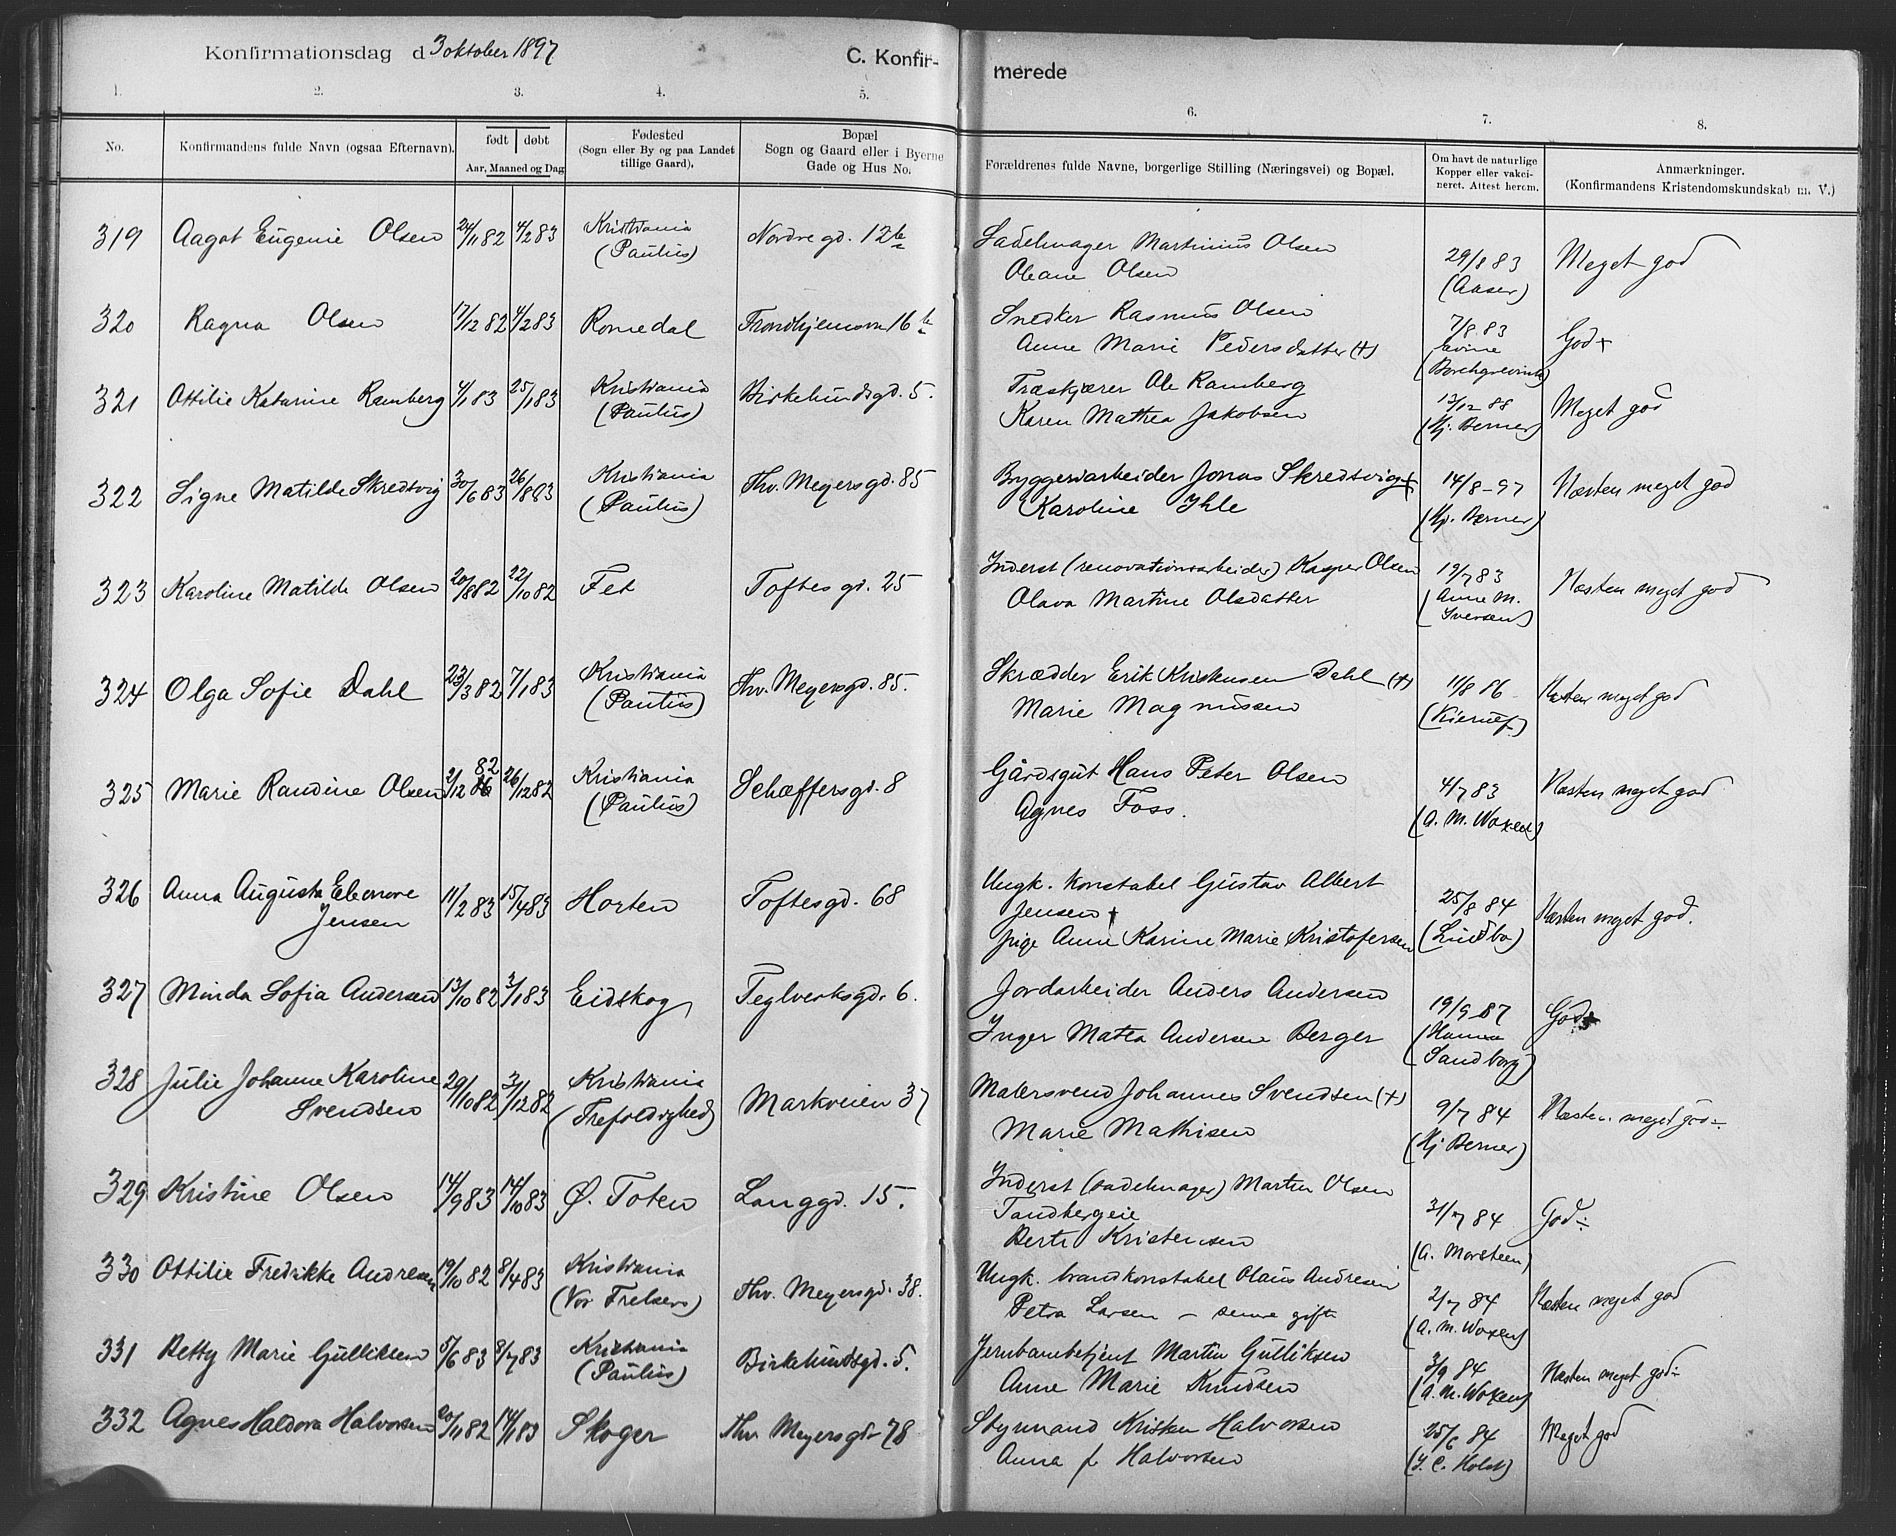 Konfirmationsdag d 3 oktober 1897
C. Konfir-
merede
1. 2. 3. 4. 5. 6. 7. 8.
No.
Konfirmandens fulde Navn (ogsaa Efternavn).
født døbt
Aar, Maaned og Dag
Fødested
(Sogn eller By og paa Landet
tillige Gaard).
Bopæl
Sogn og Gaard eller i Byerne
Gade og Hus No.
Forældrenes fulde Navne, borgerlige Stilling (Næringsvei) og Bopæl.
Om havt de naturlige
Kopper eller vakci-
neret. Attest herom.
Anmærkninger.
(Konfirmandens Kristendomskundskab m. V.)
319 Aagot Eugenie Olsen 24/11 82 4/2 83 Kristiania
(Paulus)
Nordre gd. 12b
Sadelmager Martinius Olsen
Oleane Olsen
29/8 83
(Aaser)
Meget god
320 Ragna Olsen 17/12 82 4/2 83 Romedal Trondhjemsvn 16b
Snedker Rasmus Olsen
Anne Marie Pedersdatter (+)
7/8 83
(Borchgrevink)
God+
321 Ottilie Katarine Ramberg 4/1 83 25/1 83 Kristiania
(Paulus)
Birkelundsgd. 5.
Træskjærer Ole Ramberg
Karen Mathea Jakobsen
13/12 88
(Hj. Berner)
Meget god
322 Signe Matilde Skredsvig 30/6 83 26/8 83 Kristiania
(Paulus)
Thv. Meyersgd. 85
Bryggeriarbeider Jonas Skredsvig+
Karoline Ihle
14/8-97
(Hj. Berner)
Næsten meget god
323 Karoline Matilde Olsen 20/8 82 22/10 82 Fet Toftesgd. 25
Inderst (renovationsarbeider) Kasper Olsen
Olava Martine Olsdatter
19/7 83
(Anne M.
Iversen)
Næsten meget god
324 Olga Sofie Dahl 23/3 82 7/1 83 Kristiania
(Paulus)
Thv. Meyersgd. 85.
Skrædder Erik Kristensen Dahl (+)
Marie Magnussen
11/8 86
(Kierulf)
Næsten meget god
325 Marie Randine Olsen 2/12 82 26/12 82 Kristiania
(Paulus)
Schæffersgd. 8
Gårdsgut Hans Peter Olsen
Agnes Foss.
4/7 83
(A. M. Woxen)
Næsten meget god
326 Anna Augusta Eleonore
Jensen
11/2 83 15/4 83 Horten Toftesgd. 68
Ungk. Konstabel Gustav Albert
Jensen +
pige Anne Karine Marie Kristofersen
25/8 84
(Lindbo)
Næsten meget god.
327 Minda Sofia Andersen 13/10 82 3/1 83 Eidskog Teglverksgd. 6.
Jordarbeider Anders Andersen
Inger Matea Andersen Berger
19/9 87
(Hanna
Sandborg)
God+
328 Julie Johanne Karoline
Svendsen
29/10 82 3/12 82 Kristiania
(Trefoldighed)
Markveien 37
Malersvend Johannes Svendsen (+)
Marie Mathisen
9/7 84
(Hj Berner)
Næsten meget god ÷
329 Kristine Olsen 14/9 83 14/10 83 Ø. Toten Langgd. 15.
Inderst (sadelmager) Martin Olsen
Tandbergeie
Berte Kristensen
31/7 84
(A. Morsteen)
God ÷
330 Ottilie Fredrikke Andresen 19/10 82 8/4 83 Kristiania
(Vor Frelsers)
Thv. Meyersgd. 38.
Ungk. brandkonstabel Olaus Andresen
Petra Larsen – senne gifte
2/7 84
(A. M. Woxen)
Næsten meget god
331 Betty Marie Gulliksen 5/6 83 8/7 83 Kristiania
(Paulus)
Birkelundsgd. 5.
Jernbanebetjent Martin Gulliksen
Anne Marie Knudsen
3/9 84
(A. M. Woxen)
Næsten meget god ÷
332 Agnes Haldora Halvorsen 20/11 82 14/1 83 Skoger Thv Meyersgd 78
Styrmand Kristen Halvorsen
Anna f. Halvorsen
25/6 84
(J. C. Holst)
Meget god